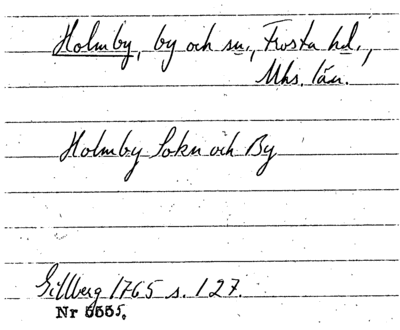 Holmby, by och sn., Frosta hd.,
Mhs. län.
Holmby Sokn och By
Gillberg 1765 s. 127.
Nr 5555,